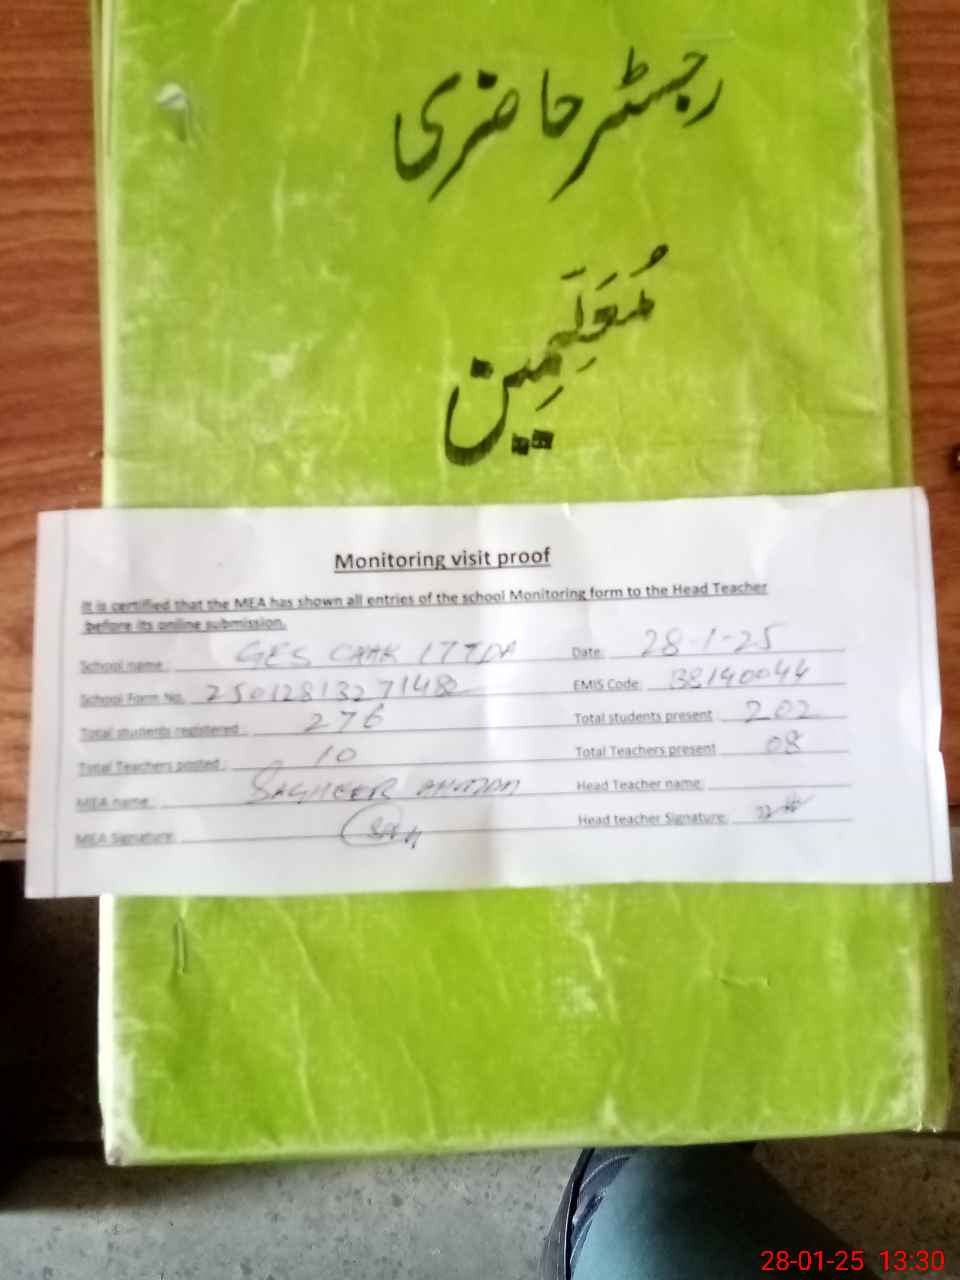 رجسٹر حاضری
مُعَلِّمِین
Monitoring visit proof
It is certified that the MEA has shown all entries of the school Monitoring form to the Head Teacher
before its online submission.
School name : GES CHAK 177DA Date: 28-1-25
School Form No. EMIS Code: 38140044
Total students registered : 276 Total students present : 202
Total Teachers posted : 10 Total Teachers present 08
MEA name : SAGHEER AHMAD Head Teacher name:
MEA Signature: Head teacher Signature:
28-01-25 13:30